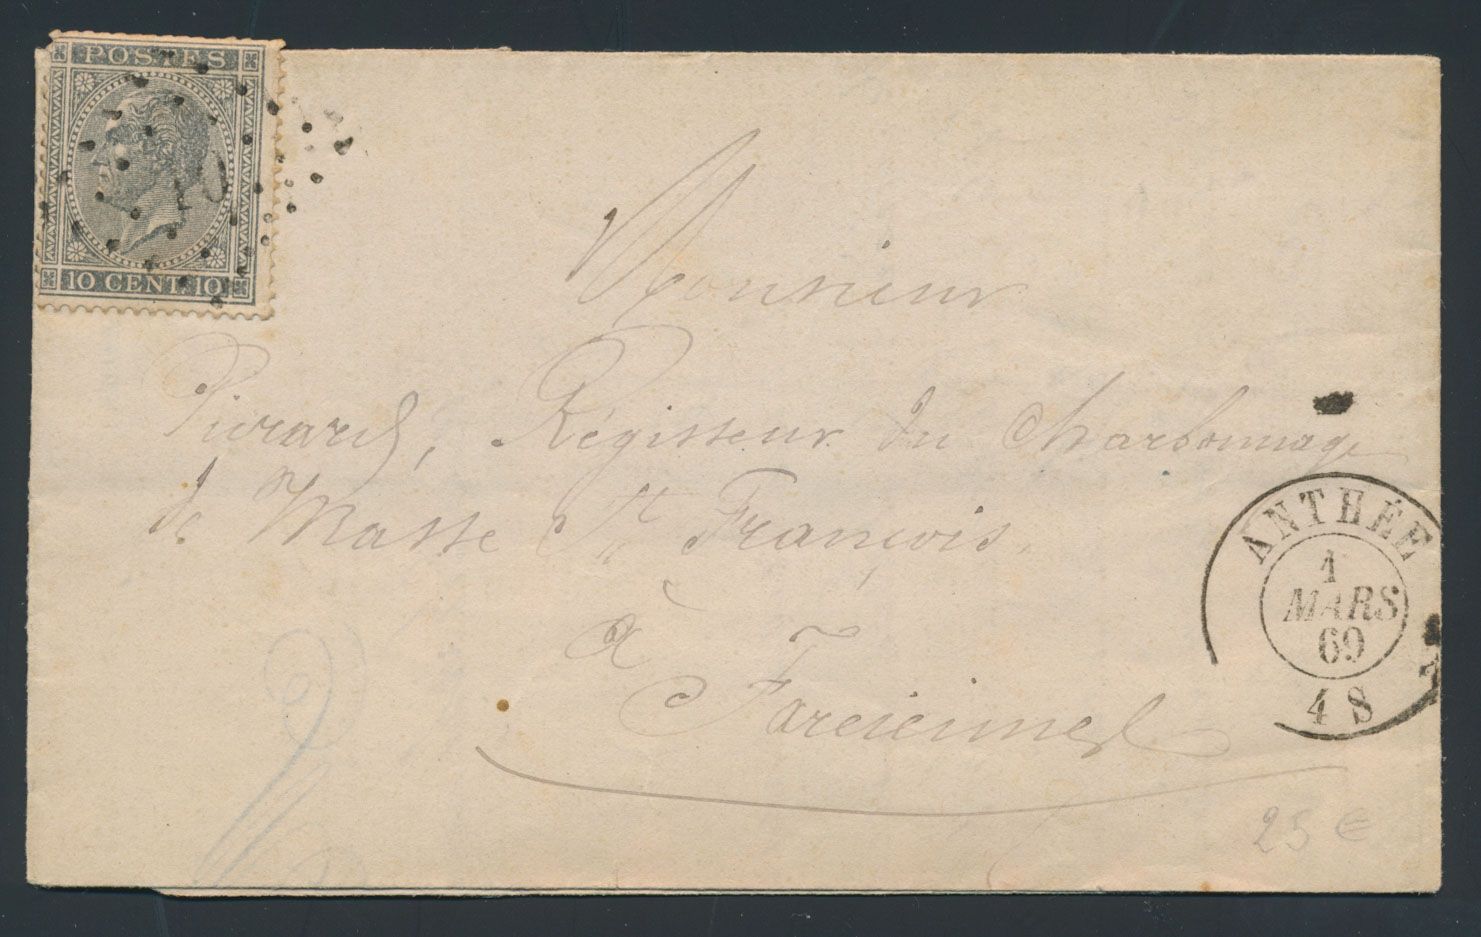 POSTES
10 CENT. 10
10
Monsieur
Pierard, Régisseur du Charbonnage
de Masse St François
à
Farciennes
ANTHÉE
1
MARS
69
4 S
25 €